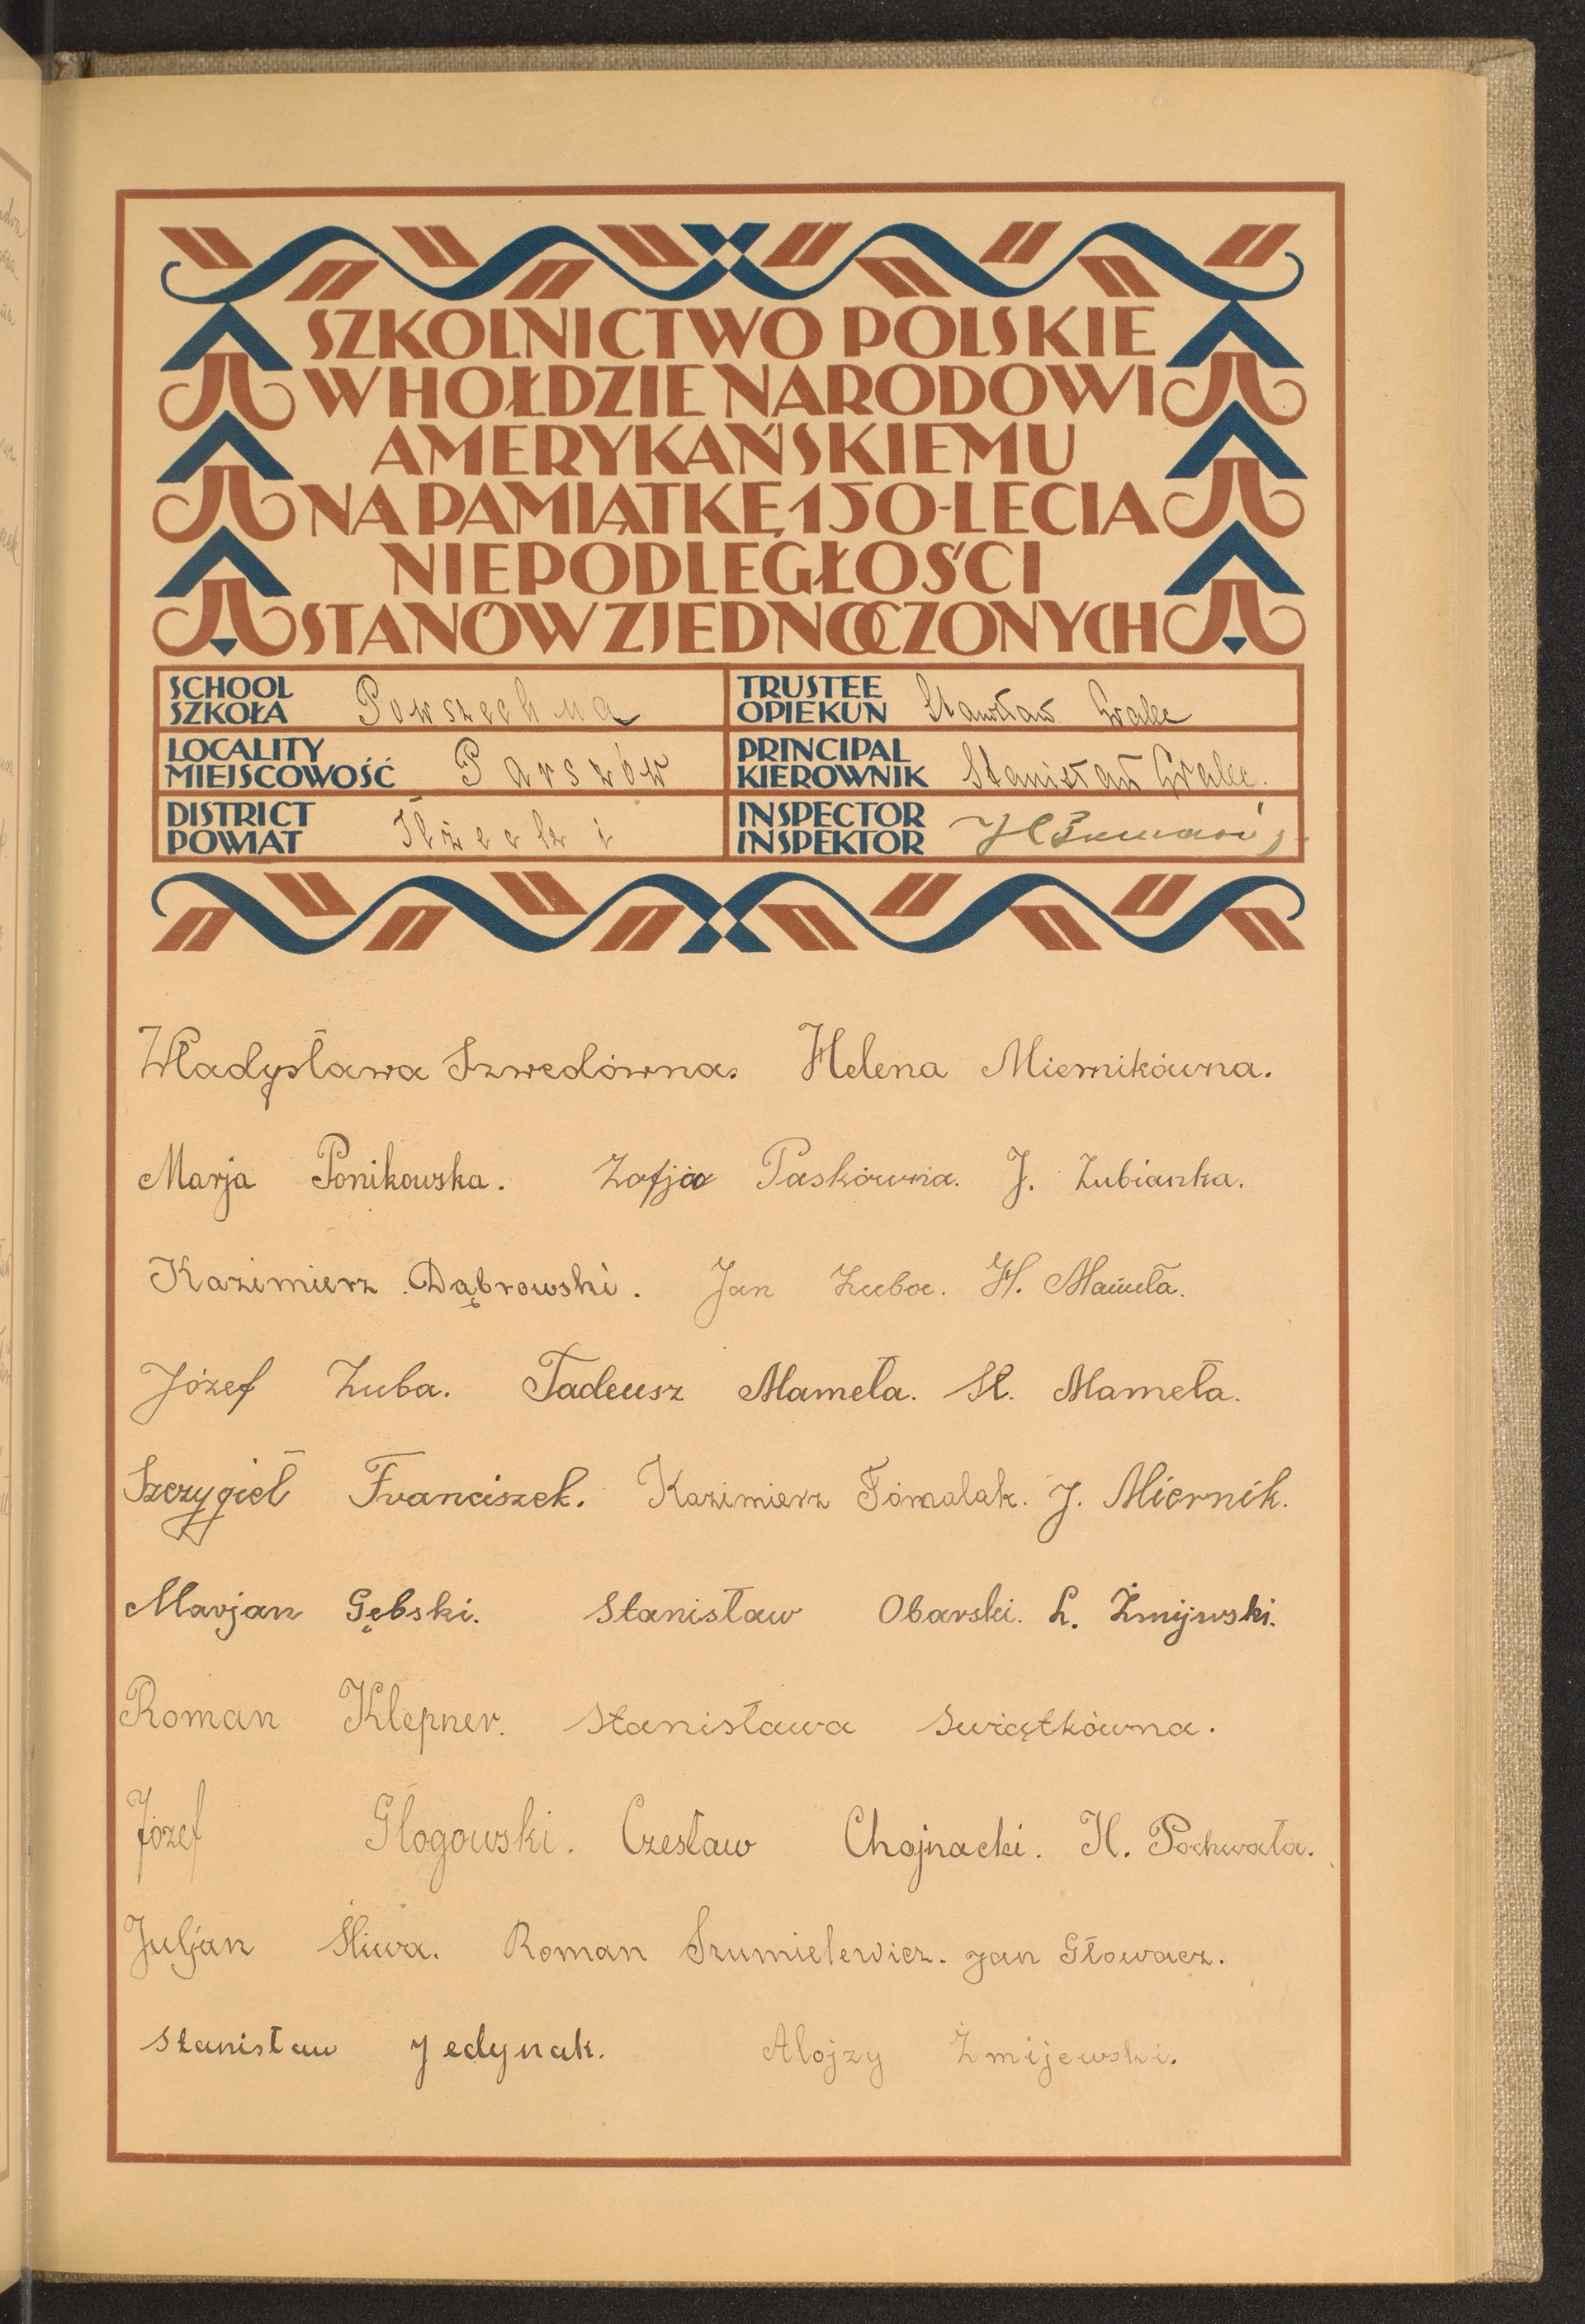 SZKOLNICTWO POLSKIE
W HOŁDZIE NARODOWI
AMERYKAŃSKIEMU
NA PAMIĄTKĘ 150-LECIA
NIEPODLEGŁOŚCI
STANÓW ZJEDNOCZONYCH
SCHOOL
SZKOŁA Powszechna
TRUSTEE
OPIEKUN Stanisław
LOCALITY
MIEJSCOWOŚĆ Parszów
PRINCIPAL
KIEROWNIK Stanisław
DISTRICT
POWIAT Iłżecki
INSPECTOR
INSPEKTOR
Władysława Szwedówna. Helena Miernikówna.
Marja Ponikowska. Zofja Paskówna. J. Zubianka.
Kazimierz Dąbrowski. Jan Zuba. H. Mameła.
Józef Zuba. Tadeusz Mameła. St. Mameła.
Szczygieł Franciszek. Kazimierz Tomalak. J. Miernik.
Marjan Gębski. Stanisław Obarski. L. Żmijwski.
Roman Klepner. Stanisława Swiątkówna.
Józef Głogowski. Czesław Chojnacki. H. Pochwała.
Juljan Śliwa. Roman Szumielewicz. Jan Głowacz.
Stanisław Jedynak. Alojzy Żmijewski.